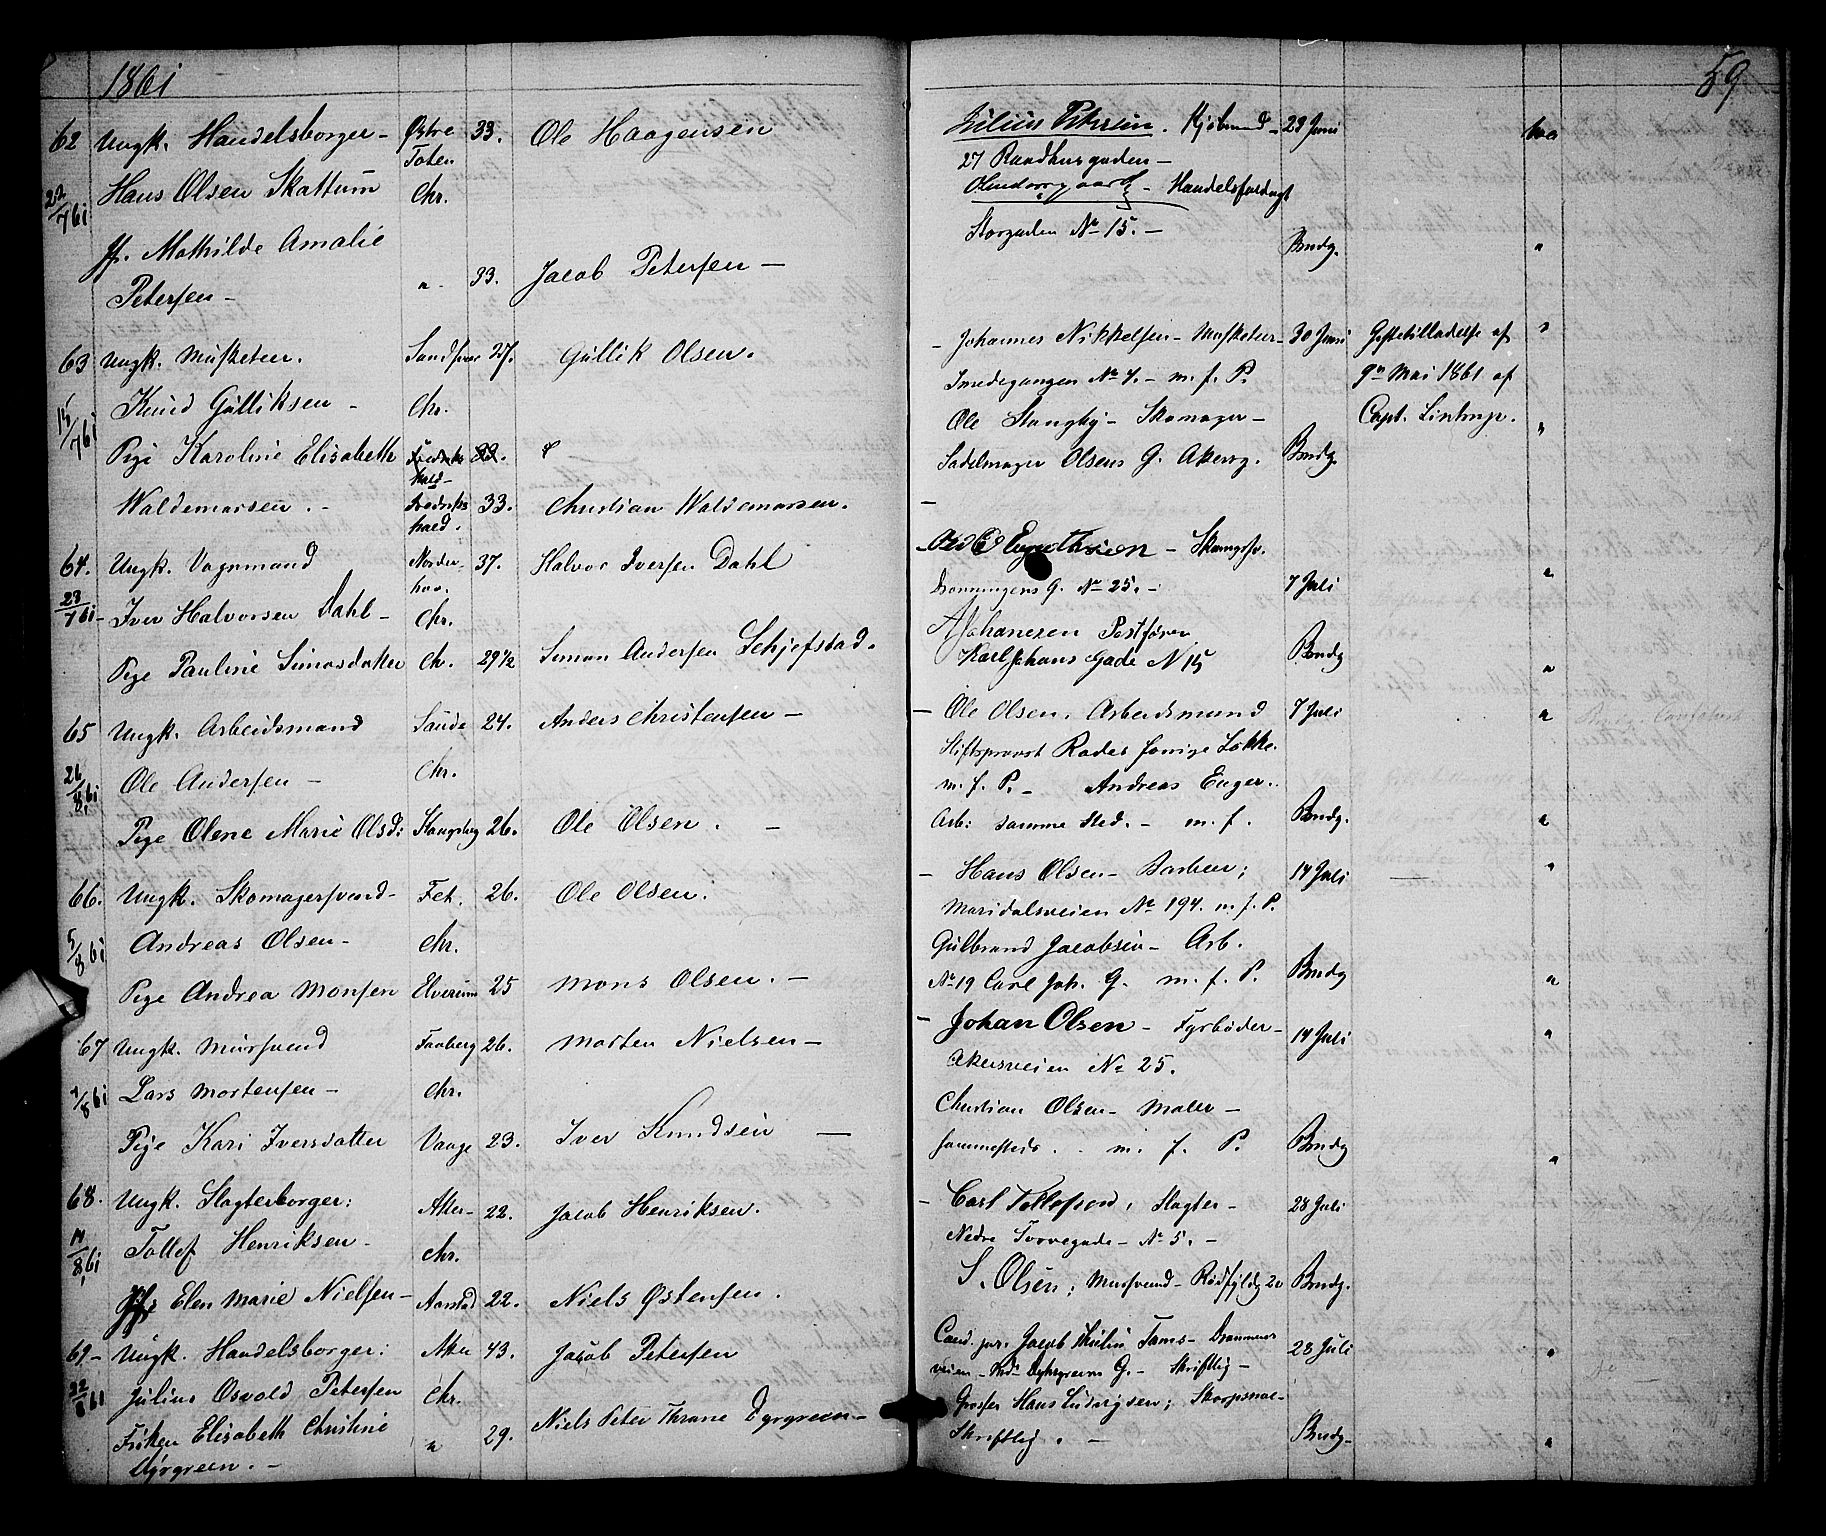 1861
59
62 Ungk. Handelsborger – Østre 33. Ole Haagensen
Toten
22/7 61 Hans Olsen Skattum Chr.
Jfr. Mathilde Amalie
Petersen – " 33. Jacob Petersen –
Julius Petersen. Kjøbmand – 29 Juni
27 Raadhusgaden –
Handelsfuldmgt
Storgaden No 15. – Bmdg.
63 Ungk. Musketeer. Sandsvær 27. Gullik Olsen.
15/7 61 Knud Gulliksen – Chr.
Pige Karoline Elisabeth
Waldemarsen. – Fredriks 33. Christian Waldemarsen.
hald.
– Johannes Nikkelsen – Musketeer – 30 Juni Giftetilladelse af
Smedegangen No 7. – m. f. P. 9de Mai 1861 af
Ole Stangby – Skomager – Capt. Lintrup.
Sadelmager Olsens G. Akersg. Bmdg.
64. Ungk. Vognmand Norder- 37. Halvor Iversen Dahl
hov.
23/7 61 – Iver Halvorsen Dahl – Chr.
Pige Pauline Simonsdatter Chr. 29 1/2 Simon Andersen Schjefstad.
Dronningens G. No 25. – 7 Juli
A Johanesen Postfører
Karl Johans Gade N 15 Bmdg
65 Ungk. Arbeidsmand Saude 24. Anders Christensen –
26/8 61 Ole Andersen – Chr.
Pige Olene Marie Olsd: 26. Ole Olsen. –
– Ole Olsen. Arbeidsmand 7 Juli
Stiftsprovst Rodes forrige Løkke.
m. f. P. – Andreas Enger.
Arb: samme Sted. – m. f. Bmdg.
66. Ungk. Skomagersvend – Fet. 26. Ole Olsen.
5/8 61 Andreas Olsen – Chr.
Pige Andrea Monsen Elverum 25 Mons Olsen. –
– Hans Olsen – 14 Juli
Maridalsveien No 194. m. f. P.
Gulbrand Jacobsen – Arb.
No 19 Carl Joh. G. m. f. P. Bmdg
67 Ungk. Mursvend Faaberg 26. Morten Nielsen –
/8 61 Lars Mortensen – Chr.
Pige Kari Iversdatter Vaage 23. Iver Knudsen –
– Johan Olsen – Fyrbøder – 14 Juli
Akersveien No 25.
Christian Olsen – Maler –
sammesteds. . m. f. P. Bmdg
68. Ungk. Slagterborger: Aker – 22. Jacob Henriksen.
14/8 61 Tollef Henriksen – Chr.
Jfr Elen Marie Nielsen – 22. Niels Østensen.
– Carl Tollefsen, Slagter – 28 Juli
Nedre Torvegade – No 5. –
S. Olsen; Mursvend – 20 Bmdg.
69 – Ungk. Handelsborger: Aker 43. Jacob Petersen
22/ 61 Julius Osvald Petersen Chr.
Frøken Elisabeth Christine " 29. Niels Peter Thrane Dyrgreen –
Dyrgreen. –
Cand. jur. Jacob Thulin Tams – Drammens 28 Juli
veien – Dyhrgreens G. – Skriftlig –
Grosser Hans Ludvigsen;
Skriftlig. – Bmdg –